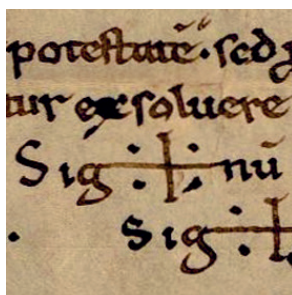 potestatē. sed
tur exsoluere
Sig ☩ nū
. Sig ☩